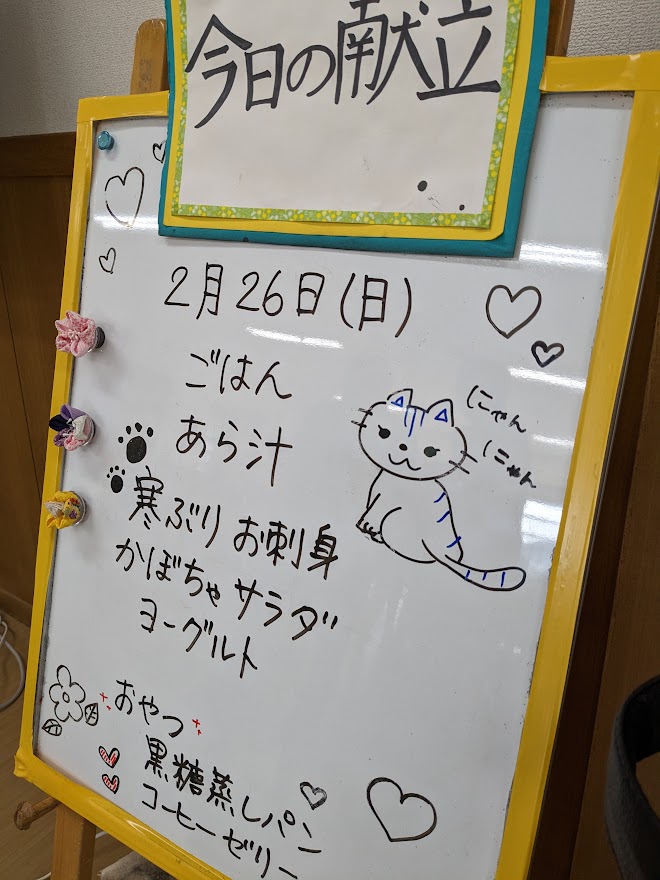 今日の献立
2月26日(日)
ごはん
にゃん
にゃん
あら汁
寒ぶりお刺身
かぼちゃサラダ
ヨーグルト
おやつ
黒糖蒸しパン
コーヒーゼリー